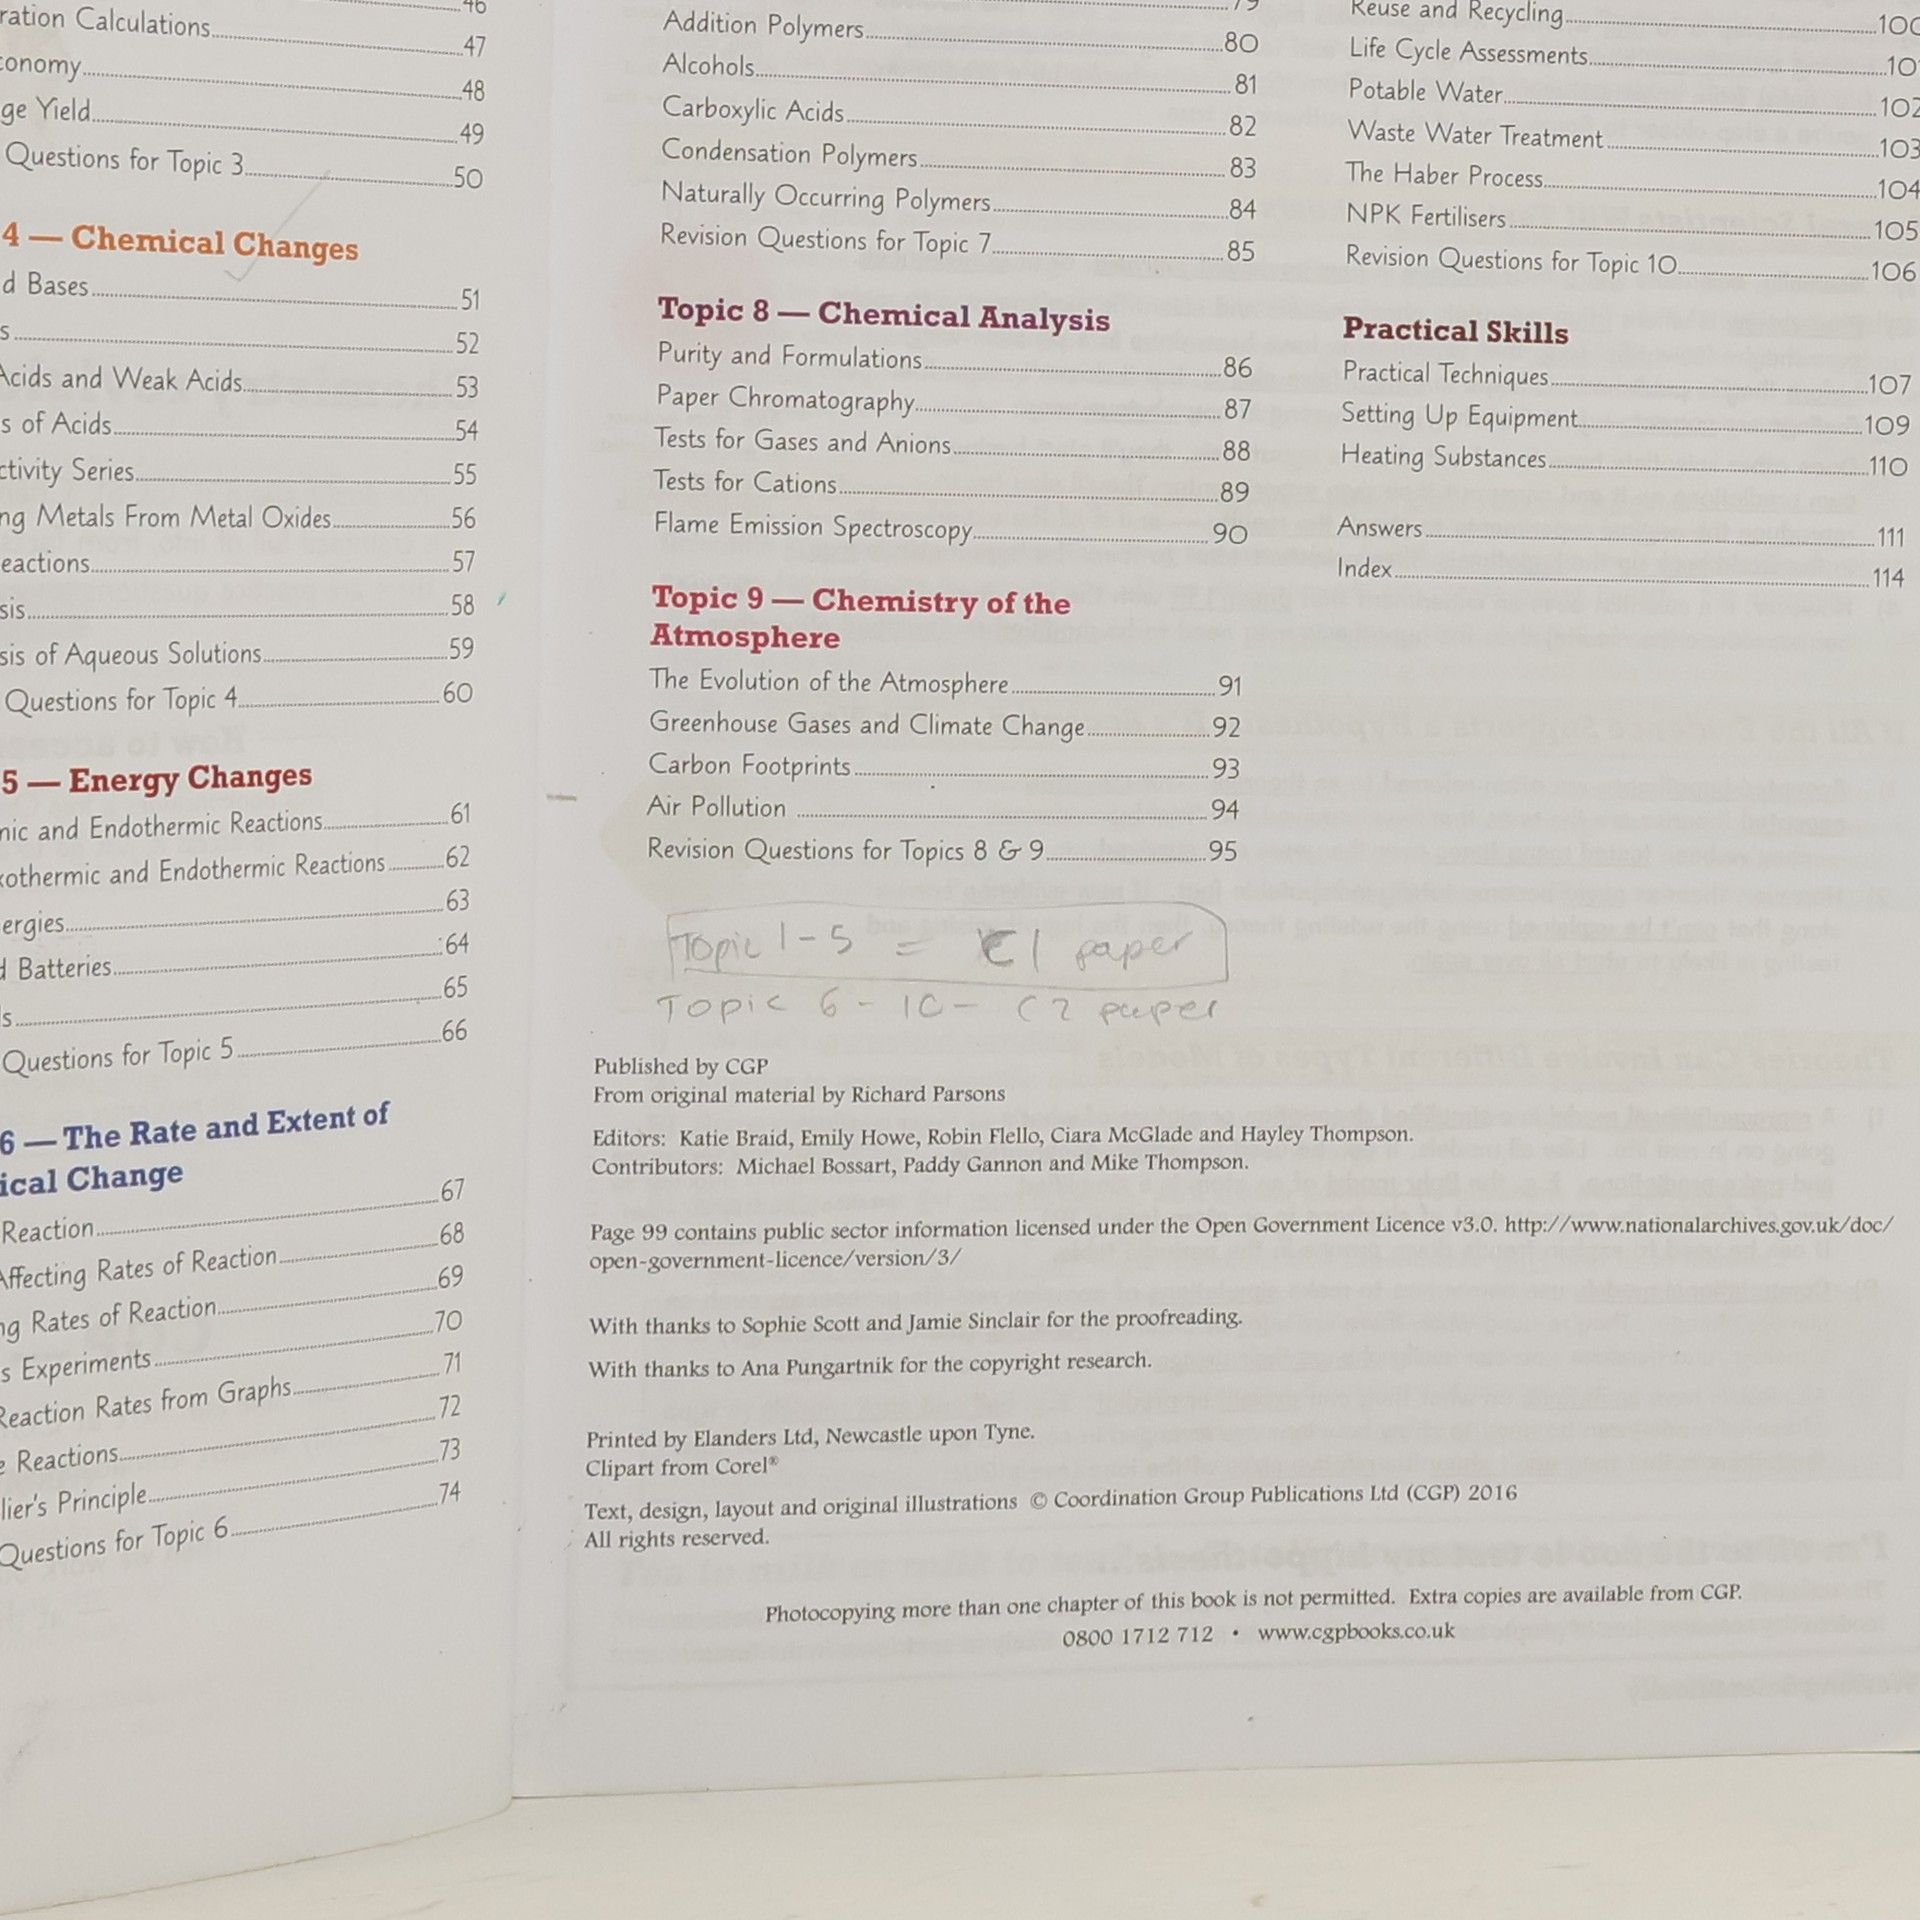 46
ration Calculations 47
conomy 48
ge Yield 49
Questions for Topic 3 50
4 — Chemical Changes
d Bases 51
s 52
Acids and Weak Acids 53
s of Acids 54
ctivity Series 55
ng Metals From Metal Oxides 56
eactions 57
sis 58
sis of Aqueous Solutions 59
Questions for Topic 4 60
5 — Energy Changes
nic and Endothermic Reactions 61
xothermic and Endothermic Reactions 62
ergies 63
d Batteries 64
s 65
Questions for Topic 5 66
6 — The Rate and Extent of
ical Change
Reaction 67
Affecting Rates of Reaction 68
ng Rates of Reaction 69
s Experiments 70
Reaction Rates from Graphs 71
e Reactions 72
lier's Principle 73
Questions for Topic 6 74
79
Addition Polymers 80
Alcohols 81
Carboxylic Acids 82
Condensation Polymers 83
Naturally Occurring Polymers 84
Revision Questions for Topic 7 85
Topic 8 — Chemical Analysis
Purity and Formulations 86
Paper Chromatography 87
Tests for Gases and Anions 88
Tests for Cations 89
Flame Emission Spectroscopy 90
Topic 9 — Chemistry of the
Atmosphere
The Evolution of the Atmosphere 91
Greenhouse Gases and Climate Change 92
Carbon Footprints 93
Air Pollution 94
Revision Questions for Topics 8 & 9 95
Reuse and Recycling 100
Life Cycle Assessments 10
Potable Water 102
Waste Water Treatment 103
The Haber Process 104
NPK Fertilisers 105
Revision Questions for Topic 10 106
Practical Skills
Practical Techniques 107
Setting Up Equipment 109
Heating Substances 110
Answers 111
Index 114
Topic 1-5 = C1 paper
Topic 6-10- C2 paper
Published by CGP
From original material by Richard Parsons
Editors: Katie Braid, Emily Howe, Robin Flello, Ciara McGlade and Hayley Thompson.
Contributors: Michael Bossart, Paddy Gannon and Mike Thompson.
Page 99 contains public sector information licensed under the Open Government Licence v3.0. http://www.nationalarchives.gov.uk/doc/
open-government-licence/version/3/
With thanks to Sophie Scott and Jamie Sinclair for the proofreading.
With thanks to Ana Pungartnik for the copyright research.
Printed by Elanders Ltd, Newcastle upon Tyne.
Clipart from Corel®
Text, design, layout and original illustrations © Coordination Group Publications Ltd (CGP) 2016
All rights reserved.
Photocopying more than one chapter of this book is not permitted. Extra copies are available from CGP.
0800 1712 712 • www.cgpbooks.co.uk